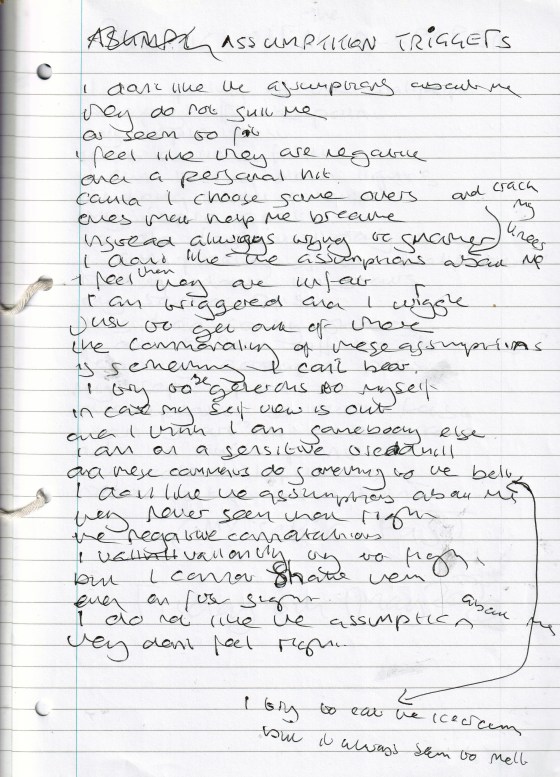 ASSUMPTITION TRIGGERS
I dont like the assumptions about me
they do not suit me
or seem to fit
I feel like they are negative
and a personal hit.
Could I choose some others
ones that help me breathe
instead always trying to and crack my knees
I dont like the assumptions about me
I feel then they are unfair
I am triggered and I wiggle
Just to get out of there
the commonality of these assumptions
is something I can't bear.
I try to be generous to myself
in case my self view is out
and I think I am somebody else
I am on a sensitive treadmill
and these comments do something to the belt,
I dont like the assumptions about me
they never seem that right
the negative connotations
I valiantly try to fight,
but I cannot shake them
even on first sight
I do not like the assumption about me
they dont feel right..
I try to eat the icecream
but it always seem to melt